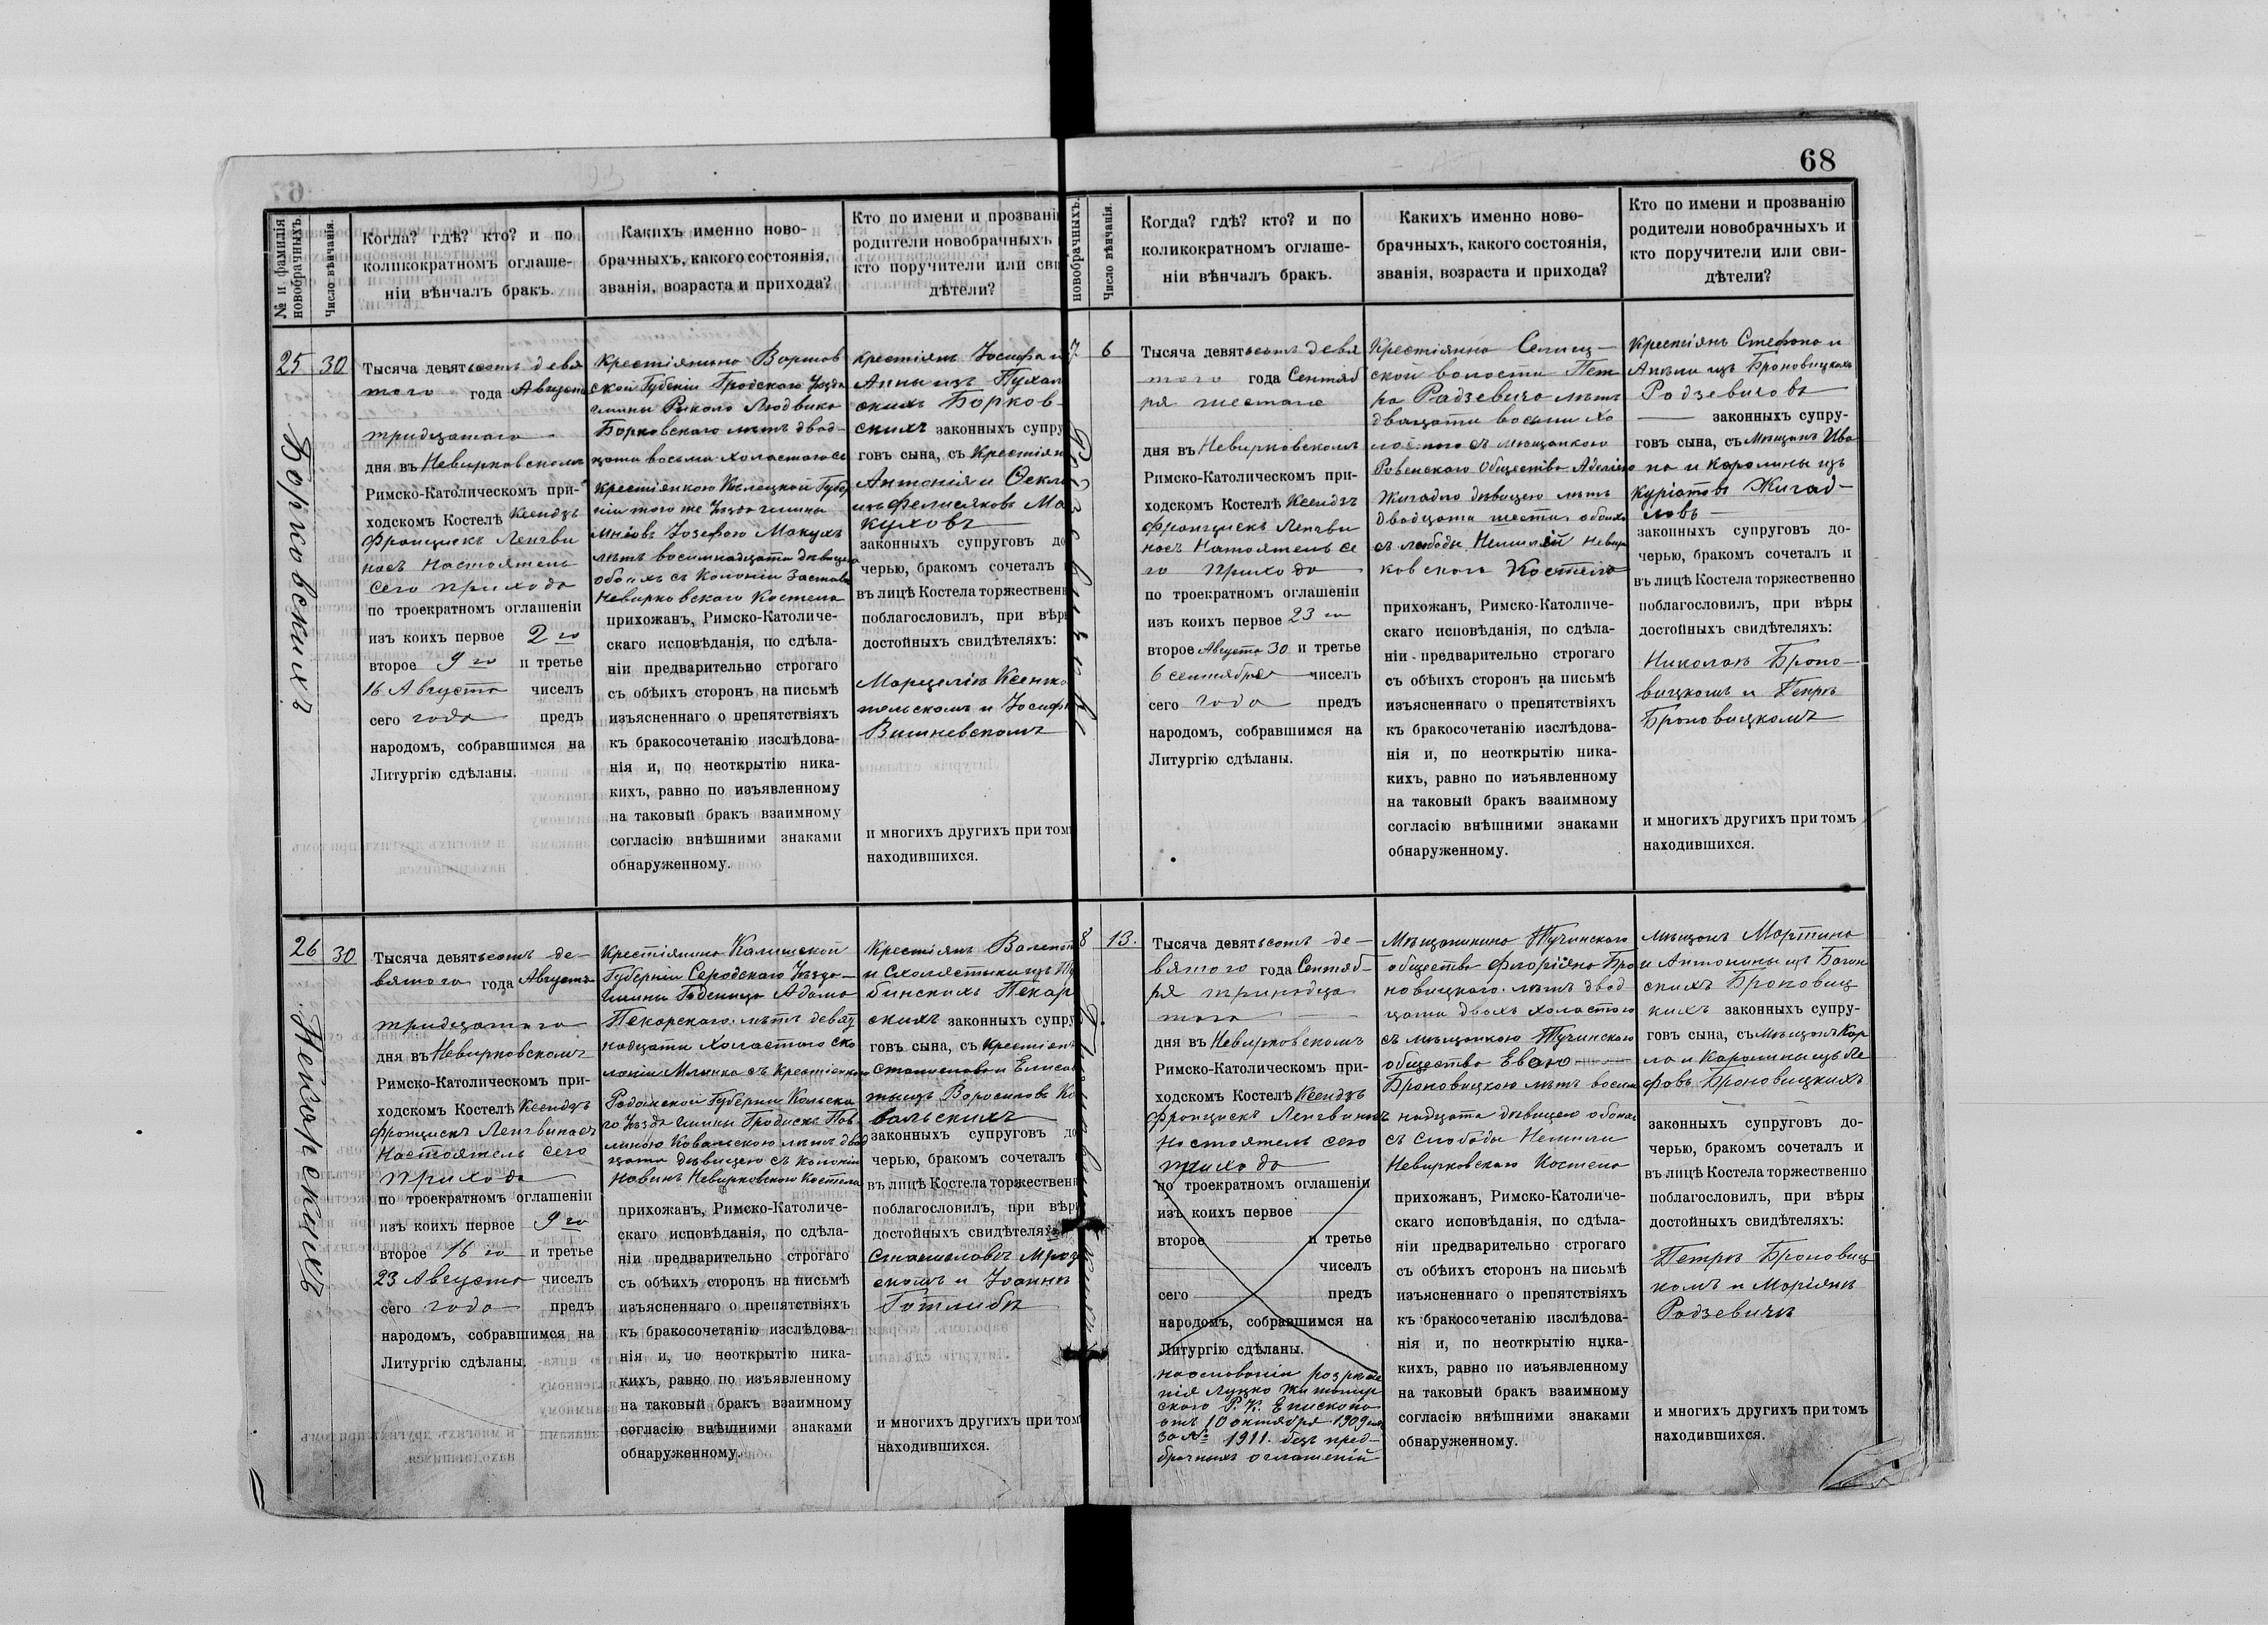 68
№ и фамилія
новобрачныхъ.
Число вѣнчанія.
Когда? гдѣ? кто? и по
коликократномъ оглаше-
ніи вѣнчалъ бракъ.
Какихъ именно ново-
брачныхъ, какого состоянія,
званія, возраста и прихода?
Кто по имени и прозвані
родители новобрачныхъ
кто поручители или сви
дѣтели?
25
30
Борковскихъ
Тысяча девятьсотъ девя
таго года Августа
тридцатаго
дня въ Невирковскомъ
Римско-Католическомъ при-
ходскомъ Костелѣ Ксендзъ
Францискъ Ленгви
насъ Настоятель
сего прихода
по троекратномъ оглашеніи
изъ коихъ первое 2го
второе 9го и третье
16 Августа чиселъ
сего года предъ
народомъ, собравшимся на
Литургію сдѣланы.
Крестіянина Варшав
ской Губеніи Гродскаго Уѣзда
гмины Людвика
Борковскаго лѣтъ двад-
цати восьми холастаго съ
Крестіянкою Кѣлецкой Губер
ніи того же Уѣзда гмины
Юзефою Макухъ
лѣтъ восимнадцати дѣвицею
обоихъ съ Колоніи Застава
Невирковскаго Костела
прихожанъ, Римско-Католиче-
скаго исповѣданія, по сдѣла-
ніи предварительно строгаго
съ обѣихъ сторонъ на письмѣ
изъясненнаго о препятствіяхъ
къ бракосочетанію изслѣдова-
нія и, по неоткрытію ника-
кихъ, равно по изъявленному
на таковый бракъ взаимному
согласію внѣшними знаками
обнаруженному.
крестіянъ Іосифа и
Анны изъ Пухаль
скихъ Борков-
скихъ законныхъ супру
говъ сына, съ Крестіян
Антонія и Ѳекли
изъ Фелисяковъ Ма
куховъ
законныхъ супруговъ до
черью, бракомъ сочеталъ
въ лицѣ Костела торжественн
поблагословилъ, при вѣры
достойныхъ свидѣтеляхъ:
Марцелія Ксенжо
польскомъ и Іосифѣ
Вишневскомъ
и многихъ другихъ при томъ
находившихся.
26
30
Пекарскихъ
Тысяча девятьсотъ де-
вятаго года Августа
тридцатаго
дня въ Невирковскомъ
Римско-Католическомъ при-
ходскомъ Костелѣ Ксендзъ
Францискъ Ленгвинасъ
Настоятель сего
прихода
по троекратномъ оглашеніи
изъ коихъ первое 9го
второе 16го и третье
23 Августа чиселъ
сего года предъ
народомъ, собравшимся на
Литургію сдѣланы.
Крестіянина Калишской
Губерніи Серодскаго Уѣзда
гмины Годеница Адама
Пекарскаго лѣтъ девят
надцати холастаго съ ко
лоніи Млинка съ Крестіянкою
Радомской Губерніи
го Уѣзда гмины Гродискъ Пав
линою Ковальскою лѣтъ двад
цати дѣвицею съ колоніи
Новинъ Невирковскаго Костела
прихожанъ, Римско-Католиче-
скаго исповѣданія, по сдѣла-
ніи предварительно строгаго
съ обѣихъ сторонъ на письмѣ
изъясненнаго о препятствіяхъ
къ бракосочетанію изслѣдова-
нія и, по неоткрытію ника-
кихъ, равно по изъявленному
на таковый бракъ взаимному
согласію внѣшними знаками
обнаруженному.
Крестіянъ Валент
и Схолястыки изъ
бинскихъ Пекар
скихъ законныхъ супру
говъ сына, съ крестіянъ
Станислава и Елисаве
ты изъ Воросиловъ Ко
вальскихъ
законныхъ супруговъ до
черью, бракомъ сочеталъ
въ лицѣ Костела торжественн
поблагословилъ, при вѣры
достойныхъ свидѣтеляхъ
Станиславѣ Мроз
скомъ и Іоаннѣ
Готлибѣ
и многихъ другихъ при томъ
находившихся.
новобрачныхъ.
Число вѣнчанія.
Когда? гдѣ? кто? и по
коликократномъ оглаше-
ніи вѣнчалъ бракъ.
Какихъ именно ново-
брачныхъ, какого состоянія,
званія, возраста и прихода?
Кто по имени и прозванію
родители новобрачныхъ и
кто поручители или сви-
дѣтели?
7
6
Радзевичовъ
Тысяча девятьсотъ девя
таго года Сентяб
ря шестаго
дня въ Невирковскомъ
Римско-Католическомъ при-
ходскомъ Костелѣ Ксендзъ
Францискъ Ленгви
насъ Натоятель се
го прихода
по троекратномъ оглашеніи
изъ коихъ первое 23го
второе Августа 30 и третье
6 сентября чиселъ
сего года предъ
народомъ, собравшимся на
Литургію сдѣланы.
Крестіянина Селищ-
ской волости Пет
ра Радзевича лѣтъ
двацати восьми хо
лостого съ мѣщанкою
Ровенскаго Общества Аделіею
Жигадло дѣвицею лѣтъ
двадцати шести обоихъ
съ слободы Немилѣй Невир
ковскаго Костела
прихожанъ, Римско-Католиче-
скаго исповѣданія, по сдѣла-
ніи предварительно строгаго
съ обѣихъ сторонъ на письмѣ
изъясненнаго о препятствіяхъ
къ бракосочетанію изслѣдова-
нія и, по неоткрытію ника-
кихъ, равно по изъявленному
на таковый бракъ взаимному
согласію внѣшними знаками
обнаруженному.
Крестіянъ Стефана и
Анели изъ Броновицкихъ
Радзевичовъ
законныхъ супру-
говъ сына, съ Мѣщанъ Ива
на и Каролины изъ
Куріатовъ Жигад-
ловъ
законныхъ супруговъ до-
черью, бракомъ сочеталъ и
въ лицѣ Костела торжественно
поблагословилъ, при вѣры
достойныхъ свидѣтеляхъ:
Николаѣ Броно-
вицкомъ и Петрѣ
Броновицкомъ
и многихъ другихъ при томъ
находившихся.
8
13.
Тысяча девятьсотъ де-
вятого года Сентяб-
ря тринадца
таго
дня въ Невирковскомъ
Римско-Католическомъ при-
ходскомъ Костелѣ Ксендзъ
Францискъ Ленгвинасъ
Настоятель сего
прихода
по троекратномъ оглашеніи
изъ коихъ первое
второе и третье
чиселъ
сего предъ
народомъ, собравшимся на
Литургію сдѣланы.
на основаніи розрѣше
нія Луцко Житомир
скаго Р. К. Епископа
отъ 10 октября 1909 года
за № 1911. безъ пред-
брачныхъ оглашеній
Мѣщанинина Тучинскаго
общества Флоріяна Бро
новицкаго лѣтъ двад
цати двохъ холостого
съ мѣщанкою Тучинскаго
общества Евою
Броновицкою лѣтъ восим
надцати дѣвицею обоихъ
съ Слободы Немили
Невирковскаго Костела
прихожанъ, Римско-Католиче-
скаго исповѣданія, по сдѣла-
ніи предварительно строгаго
съ обѣихъ сторонъ на письмѣ
изъясненнаго о препятствіяхъ
къ бракосочетанію изслѣдова-
нія и, по неоткрытію ника-
кихъ, равно по изъявленному
на таковый бракъ взаимному
согласію внѣшними знаками
обнаруженному.
Мѣщанъ Мартина
и Антонины изъ Баган
скихъ Броновиц
кихъ законныхъ супру-
говъ сына, съ Мѣщанъ Кар
ла и Каролины изъ Ле
фовъ Броновицкихъ
законныхъ супруговъ до-
черью, бракомъ сочеталъ и
въ лицѣ Костела торжественно
поблагословилъ, при вѣры
достойныхъ свидѣтеляхъ:
Петрѣ Броновиц
комъ и Маріянѣ
Радзевичѣ
и многихъ другихъ при томъ
находившихся.